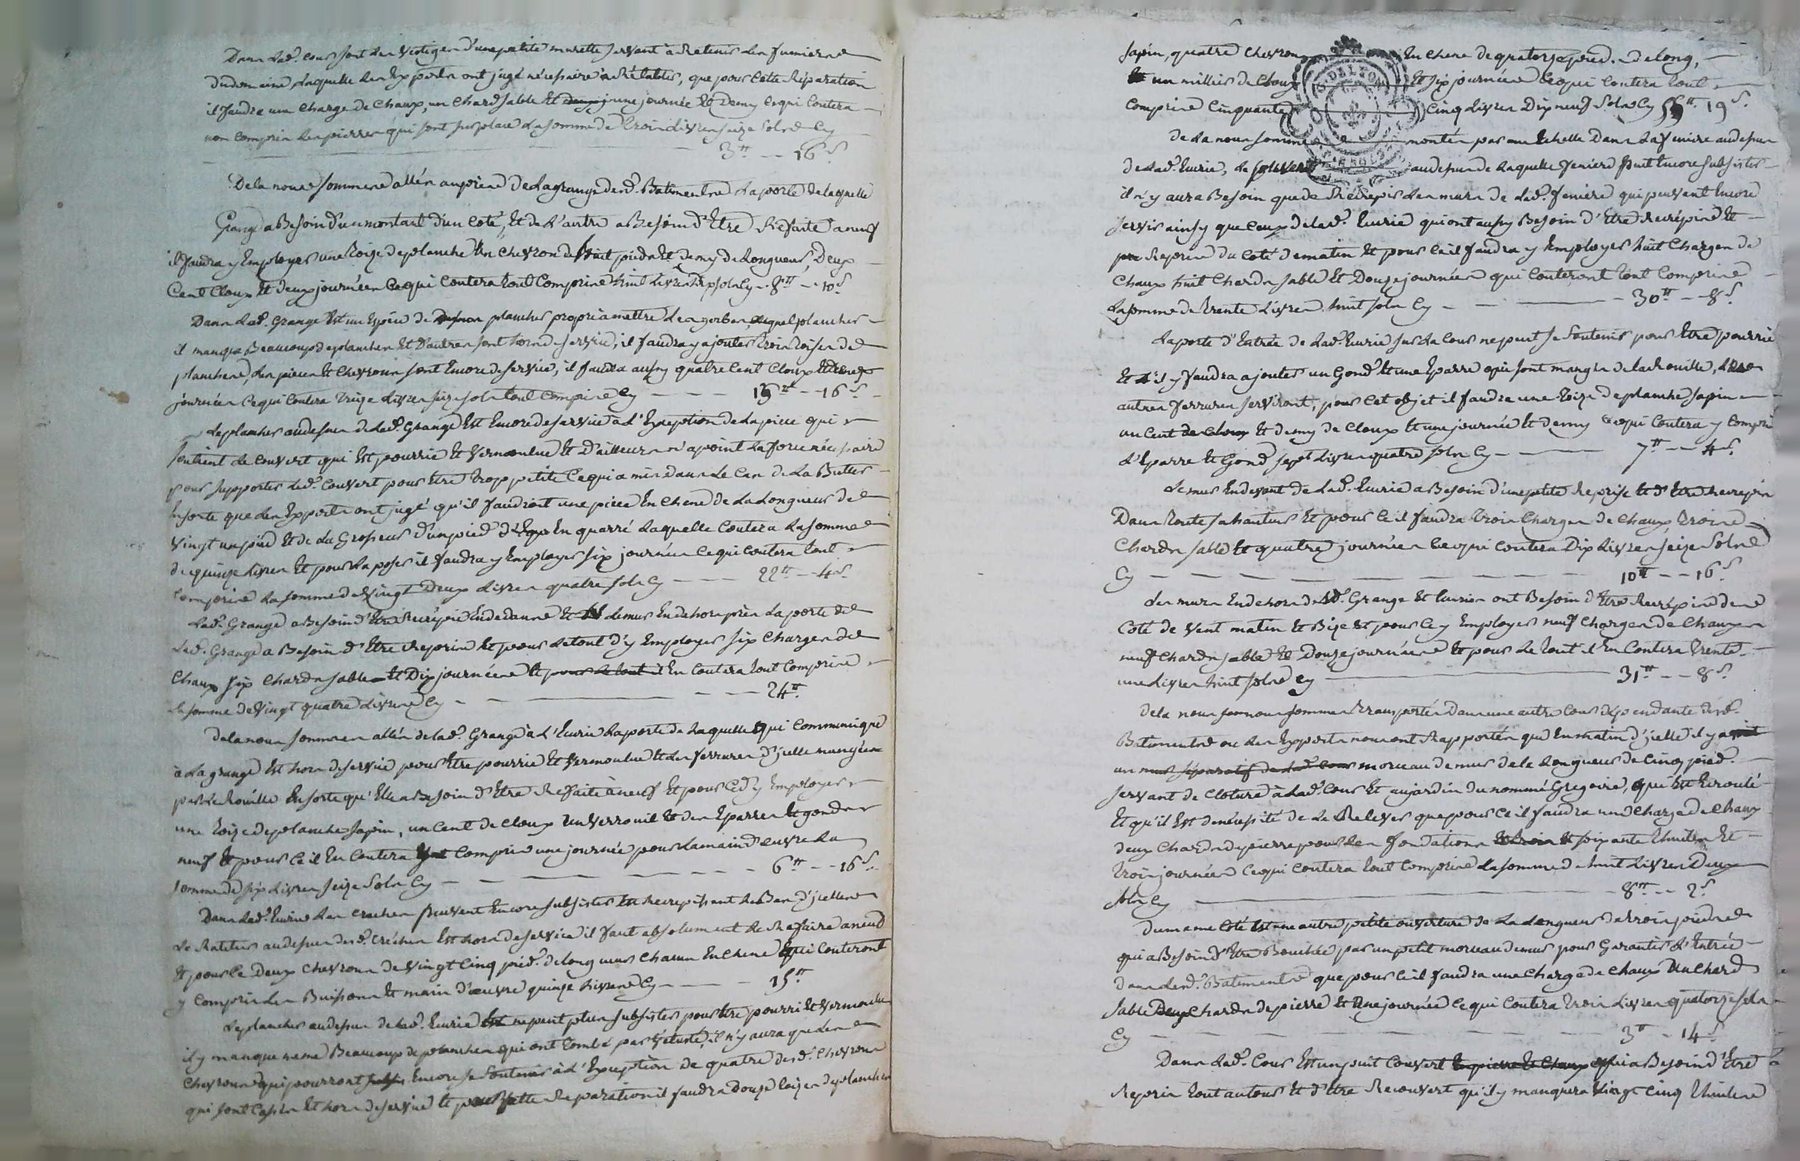 Dans lad. cour sont les vestiges d'une petite murette servant à Retenir les fumiers
dudomaine laquelle les Experts ont jugé nécessaire de Rétablir, que pour cette Réparation
il faudra une charge de Chaux, un chard sable Et une journée Et Demy ce qui Coutera
non Compris les pierres qui sont sur place La somme de Trois Livres seize Sols Cy
3tt -- 16s
De la nous sommes allés au près De La grange desd. Batiments La porte de laquelle
Grange a Besoin d'un montant d'un Coté, Et de L'autre a Besoin d'Etre Refaite a neuf
il faudra y Employer une Toize de planche Un Chevron de huit pieds Et demy de Longueur, Deux
Cent Cloux Et deux journées Ce qui Coutera tout Compris huit Livres Dix sols Cy - 8tt -- 10s
Dans Lad. Grange Est un Espèce de plancher propre a mettre Les gerbes, duquel plancher
il manque Beaucoup de planches Et D'autres sont hors de service, il faudra y ajouter Trois Toises de
planches, Les pieces Et Chevrons sont Encore de service, il faudra aussy quatre Cent Cloux Et trois
journées Ce qui Coutera Treize Livres seize sols tout Compris Cy ---- 13tt -- 16s
Le plancher au dessus de Lad. Grange Est Encore de service à L'Exception de La piece qui
soutient Le Couvert qui Est pourrie Et Vermoulue Et D'ailleurs n'a point La force nécessaire
pour supporter Led. Couvert pour Etre trop petite Ce qui a mis dans Le Cas de La Butter
En sorte que Les Experts ont jugé qu'il faudroit une piece En Chene de La Longueur de
Vingt un pied Et de La Grosseur D'un pied En quarré Laquelle Coutera La somme
de quinze Livres Et pour La poser il faudra y Employer six journées Ce qui Coutera tout
Compris La somme de Vingt Deux Livres quatre sols Cy ---- 22tt -- 4s
Lad. Grange a Besoin d'Etre Recrépie En dedans Et Le mur En dehors près La porte de
Lad. Grange a Besoin d'Etre Repris Et pour Le tout d'y Employer six Charges de
Chaux six Chards sable Et Dix journées Et pour le tout il En Coutera tout Compris
La somme de Vingt quatre Livres Cy ---- 24tt
De la nous sommes allés de Lad. Grange à L'Ecurie La porte de Laquelle qui Communique
à La grange Est hors de service pour Etre pourrie Et Vermoulue Et Les ferrures d'icelle mangées
par La Rouille En sorte qu'Elle a Besoin d'Etre Refaite à neuf Et pour Ce d'y Employer
une Toize de planche sapin, un Cent de Cloux Un Verrouil Et des Eparres Et gonds
neuf Et pour Ce il En Coutera Compris une journée pour La main d'œuvre La
somme de six Livres seize Sols Cy ---- 6tt -- 16s
Dans Lad. Ecurie Les Creches peuvent Encore subsister En Recrepissant Le Bas d'icelles
Le Ratelier au dessus desd. Creches Est hors de service il faut absolument Le Refaire a neuf
Et pour Ce Deux Chevrons de Vingt Cinq pied. de Longueur Chacun En Chene Ce qui Couteront
y Compris Les Buissons Et main d'œuvre quinze Livres Cy ---- 15tt
Le plancher au dessus de Lad. Ecurie ne peut plus subsister pour Etre pourri Et Vermoulu
il y manque meme Beaucoup de planches qui ont Tombé par Vetusté, il n'y aura que Les
Chevrons qui pourront Encore se soutenir à L'Exception de quatre desd. Chevrons
qui sont Cassés Et hors de service Et pour Cette Reparation il faudra Douze Toizes de planches
sapin, quatre Chevrons En Chene de quatorze pied. de Long,
Et un millier de Cloux Et six journées Ce qui Coutera tout
Compris Cinquante Cinq Livres Dix neuf Sols Cy 55tt 19s
De La nous sommes montés par une Echelle Dans La feniere au dessus
de Lad. Ecurie, Le Couvert au dessus de Laquelle feniere peut Encore subsister
il n'y aura Besoin que de Recrepir Les murs de Lad. feniere qui peuvent Encore
servir ainsy que Ceux de Lad. Ecurie qui ont aussy Besoin d'Etre Recrépis Et
Repris du Coté de matin Et pour Ce il faudra y Employer huit Charges de
Chaux huit Chards sable Et Douze journées qui Couteront tout Compris
La somme de Trente Livres huit sols Cy ---- 30tt -- 8s
La porte d'Entrée de Lad. Ecurie sur La Cour ne peut se soutenir pour Etre pourrie
Et il y faudra ajouter un Gond Et une Eparre qui sont mangés de La Rouille, Les
autres ferrures serviront, pour Cet objet il faudra une Toize de planche sapin
un Cent Et demy de Cloux Et une journée Et demy Ce qui Coutera y Compris
L'Eparre Et Gond sept Livres quatre sols Cy ---- 7tt -- 4s
Le mur En devant de Lad. Ecurie a Besoin d'une petite Reprise Et d'Etre Recrepis
Dans Toute sa hauteur Et pour Ce il faudra Trois Charges de Chaux, Trois
Chards sable Et quatre journées Ce qui Coutera Dix Livres seize Sols
Cy ---- 10tt -- 16s
Les murs En dehors desd. Grange Et Ecurie ont Besoin d'Etre Recrépis des
Coté de Vent matin Et Bize Et pour Ce y Employer neuf Charges de Chaux
neuf Chards sable Et Douze journées Et pour Le tout il En Coutera Trente
une Livres huit sols Cy ---- 31tt -- 8s
De la nous nous sommes Transportés Dans une autre Cour dépendante desd.
Batiments ou Les Experts nous ont Rapportés que Du matin d'icelle il y a
un mur séparatif de Lad. Cour morceau de mur de La Longueur de Cinq pied.
servant de Cloture à Lad. Cour Et au jardin du nommé Gregoire, qui Est Ecroulé
Et qu'il Est de nécessité de Le Relever que pour Ce il faudra une Charge de Chaux
deux Chards de pierre pour Les fondations Et soixante Thuiles Et
Trois journées Ce qui Coutera tout Compris La somme de huit Livres Deux
sols Cy ---- 8tt -- 2s
Du meme Coté Est une autre petite ouverture de La Longueur de Trois pieds
qui a Besoin d'Etre Bouchée par un petit morceau de mur pour Garantir L'Entrée
Dans Lesd. Batiments que pour Ce il faudra une Charge de Chaux Un Chard
sable Deux Chards de pierre Et Une journée Ce qui Coutera Trois Livres quatorze sols
Cy ---- 3tt -- 14s
Dans Lad. Cour Est un puit Couvert qui a Besoin d'Etre
Repris Tout autour Et d'Etre Recouvert qu'il y manquera Vingt Cinq Thuiles